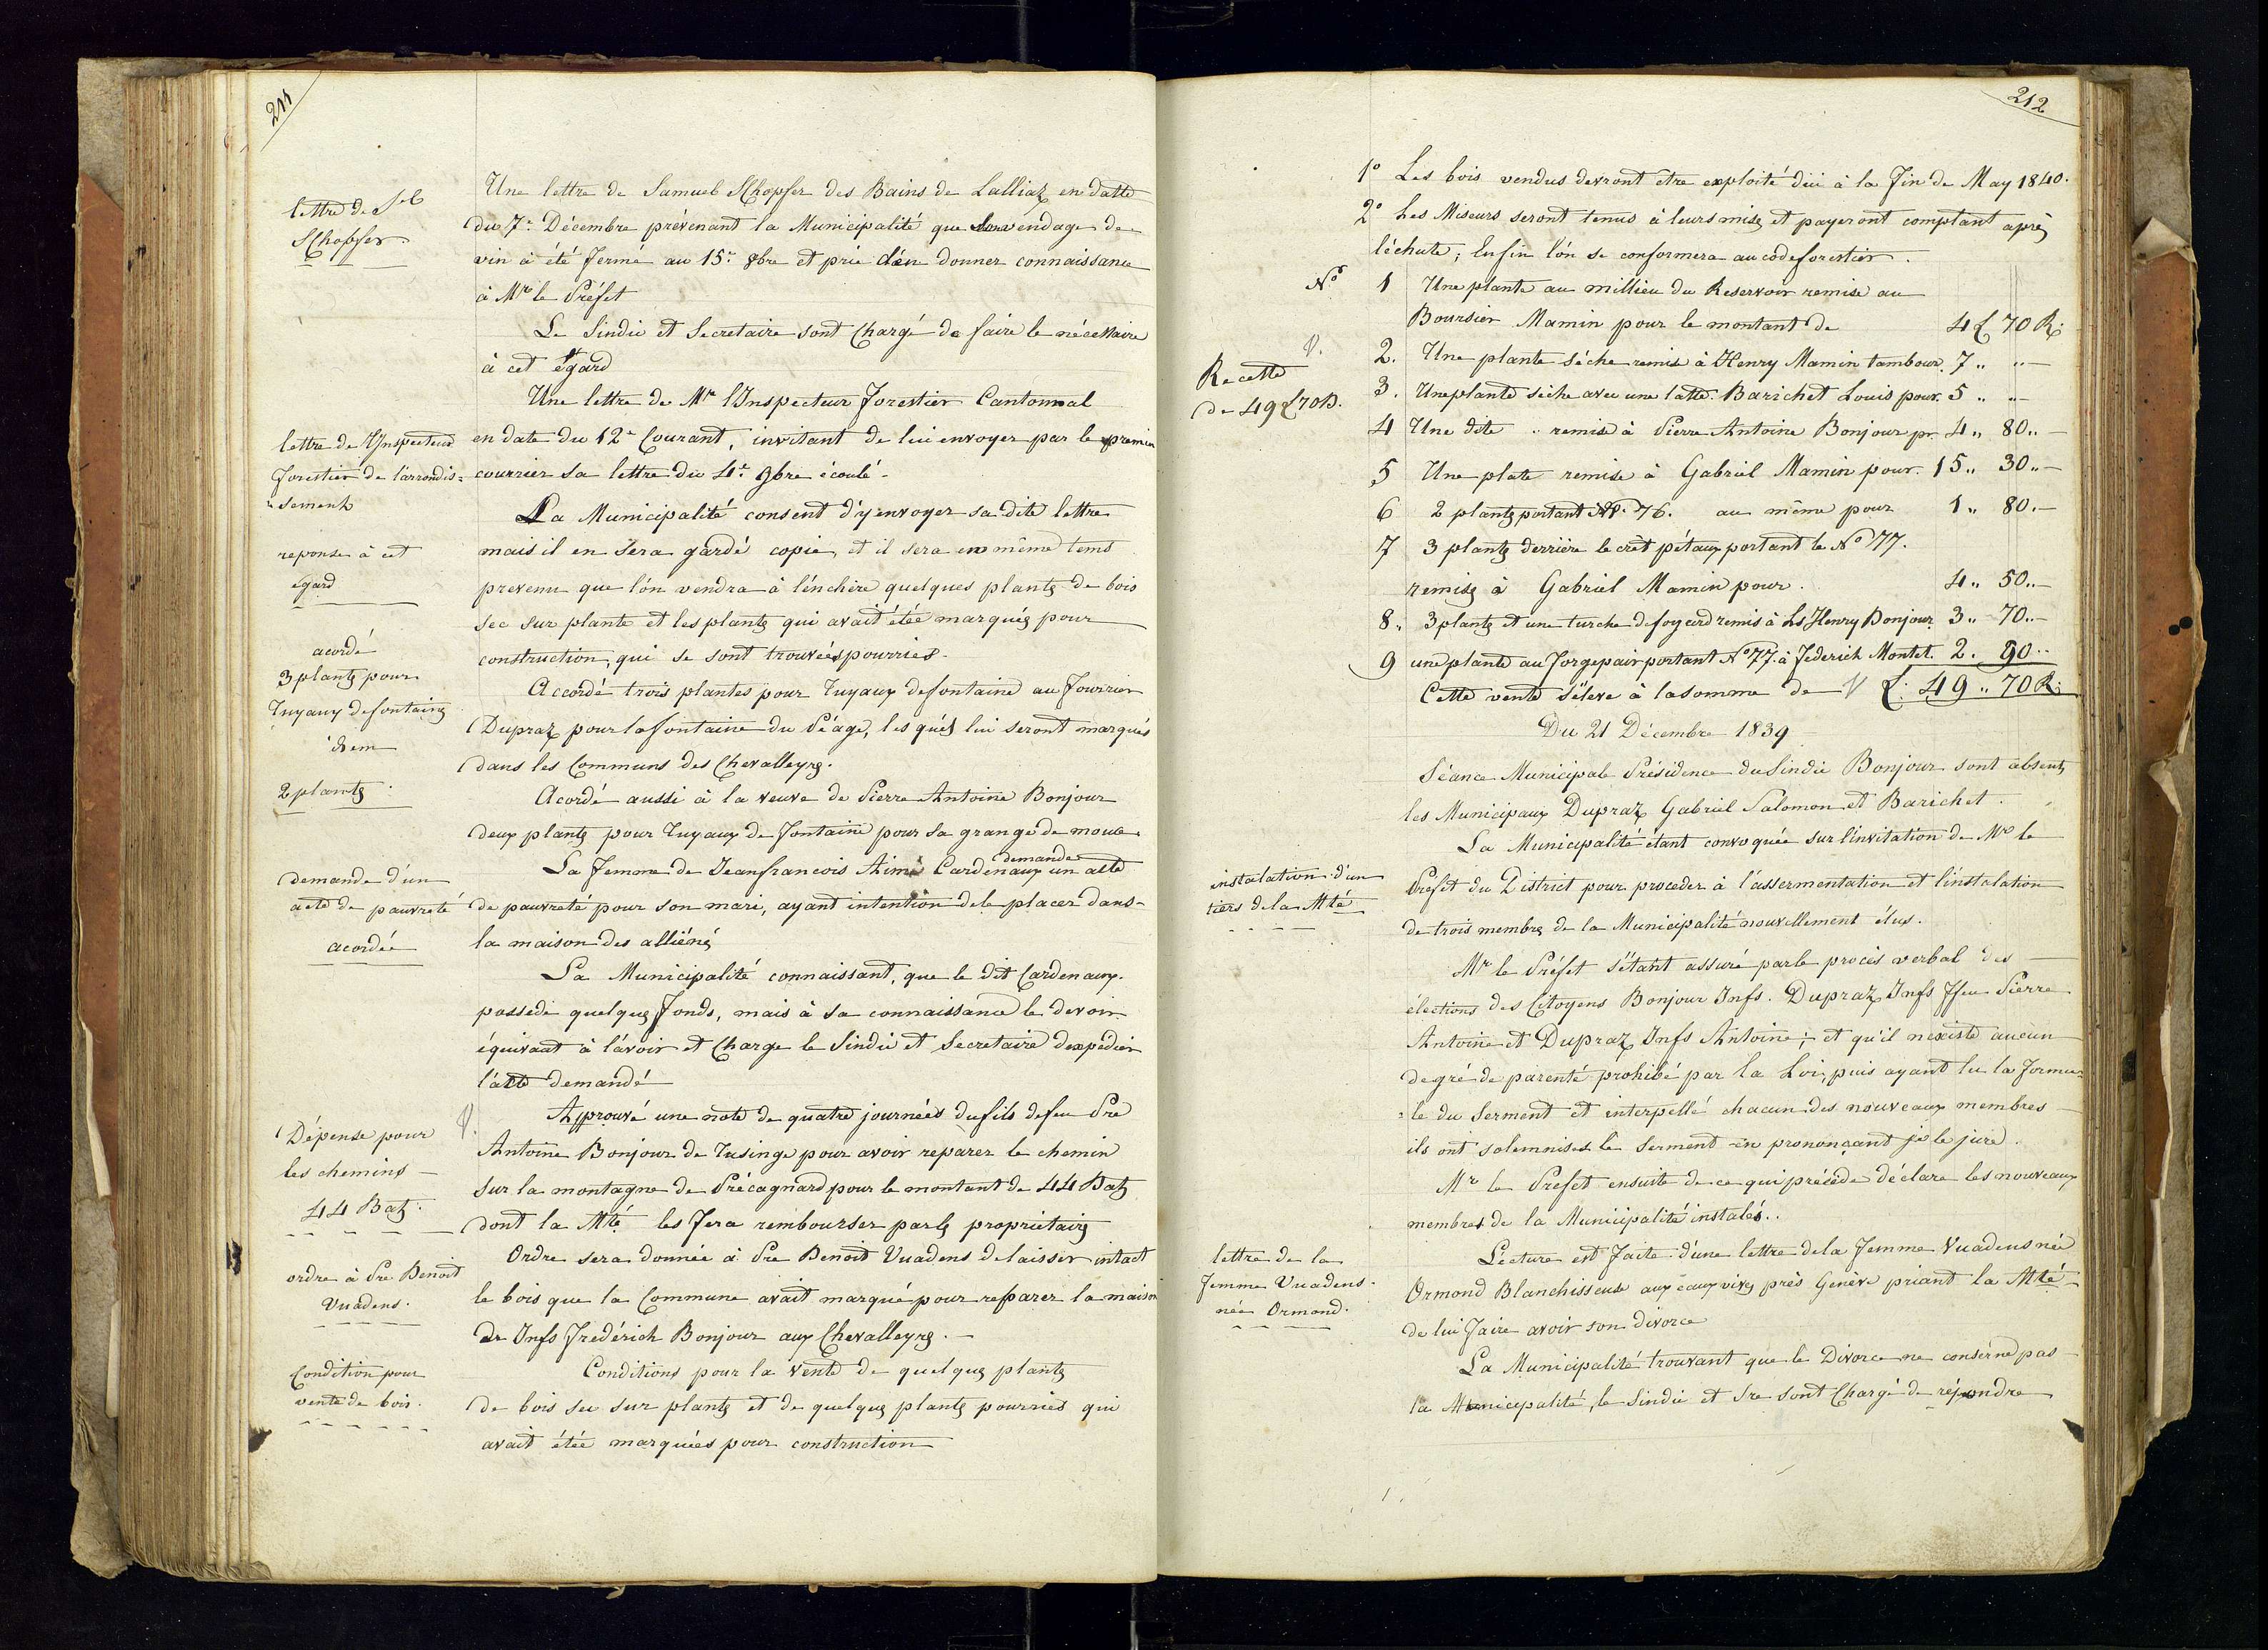 211
lettre de Sel
SChopfer.
Une lettre de Samuel SChopfer des Bains de Lalliaz en datte
du 7e Décembre prévenant la Municipalité que son vendage de
vin à été fermé au 15e 8bre et prie d'én donner connaissance
à Mr le Préfet
Le Sindic et Secretaire sont Chargé de faire le nécessaire
à cet égard
lettre de l'Inspecteur
forestier de l'arrondis=
=sement
Une lettre de Mr l'Inspecteur forestier Cantonnal
en date du 12e Courant, invitant de lui envoyer par le premier
courrier sa lettre du 4e 9bre écoulé.
reponse à cet
égard
La Municipalité consent d'y envoyer sa dite lettre
mais il en sera gardé copie, et il sera en même tems
prevenu que l'on vendra à l'énchère quelques plantes de bois
sec sur plante et les plantes qui avait étée marqués pour
construction, qui se sont trouvées pourries.
acordé
3 plantes pour
Tuyaux de fontaines
Accordé trois plantes pour Tuyaux de fontaine au fourrier
Dupraz pour la fontaine du Péage, les qués lui seront marqués
dans les Communs des Chevalleyres.
idem
2 plantes.
Acordé aussi à la veuve de Pierre Antoine Bonjour
deux plantes pour Tuyaux de fontaine pour sa grange de
demande d'un
acte de pauvreté
acordée
La femme de Jeanfrancois Aimé Cardenaux demande un acte
de pauvreté pour son mari, ayant intention de le placer dans
la maison des alliénés
La Municipalité connaissant, que le dit Cardenaux.
possède quelques fonds, mais à sa connaissance le devoir
équivaut à l'avoir et Charge le Sindic et Secretaire d'expédier
l'acte demandé
Dépense pour
les chemins
44 Batz.
V.
Approuvé une note de quatre journées du fils de feu Pre
Antoine Bonjour de Tusinge pour avoir reparer le chemin
sur la montagne de Précagnard pour le montant de 44 Batz
dont la Mté les fera rembourser par les propriétaires
ordre à Pre Benoit
Vuadens.
Ordre sera donnée à Pre Benoit Vuadens de laisser intact
le bois que la Commune avait marqué pour reparer la maison
de Jnfs Fredérich Bonjour aux Chevalleyres.
Condition pour
vente de bois.
Conditions pour la vente de quelques plantes
de bois sec sur plantes et de quelques plantes pourries qui
avait étée marquées pour construction
212
1o Les bois vendus devront être exploité d'ici à la fin de May 1840.
2o Les Miseurs seront tenus à leurs mises et payeront comptant après
l'échute; Enfin l'ón se conformera au code forestier.
No 1 Une plante au millieu du Reservoir remise au
Boursier Mamin pour le montant de 4 L 70 R.
V.
Recette
de 49 L 70 R.
2. Une plante sèche remise à Henry Mamin tambour. 7 " "
3. Une plante sèche avec une latte. Barichet Louis pour. 5 " "
4 Une dite " remise à Pierre Antoine Bonjour pr. 4 " 80 "
5 Une plate remise à Gabriel Mamin pour. 15 " 30 "
6 2 plantes portant No. 76. au même pour 1 " 80 "
7 3 plantes derrière le crêt pétaux portant le No 77.
remises à Gabriel Mamin pour. 4 " 50 "
8. 3 plantes et une turche de foyard remis à Ls Henry Bonjour 3 " 70 "
9 une plante au Forgepair portant No 77. à Féderich Montet. 2. 90 "
Cette vente s'éleve à la somme de V L. 49 " 70 R.
Du 21 Décembre 1839
Séance Municipale Présidence du Sindic Bonjour sont absents
les Municipaux Dupraz Gabriel Salomon et Barichet.
instalation d'un
tiers de la Mté
La Municipalité étant convoquée sur l'invitation de Mr le
Préfet du District pour proceder à l'assermentation et l'instalation
de trois membres de la Municipalité nouvellement élus.
Mr le Préfet s'étant assuré par le procès verbal des
élections des Citoyens Bonjour Jnfs. Dupraz Jnfs ffeu Pierre
Antoine et Dupraz Jnfs Antoine; et qu'il n'existe aucun
degré de parenté prohibé par la Loi, puis ayant lu la formu=
=le du Serment et interpellé chacun des nouveaux membres
ils ont solemnisés le serment en prononçant je le jure.
Mr le Préfet ensuite de ce qui précède déclare les nouveaux
membres de la Municipalité instalés..
lettre de la
femme Vuadens
née Ormond.
Lecture est faite d'une lettre de la femme Vuadens née
Ormond Blanchisseuse aux eaux vives près Genève priant la Mté
de lui faire avoir son divorce
La Municipalité trouvant que le Divorce ne conserne pas
la Municipalité, le Sindic et Sre sont Chargé de répondre